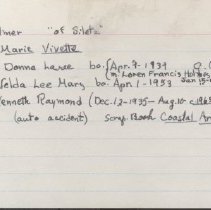 lmer "of Siletz"
Marie Vivette
Donna Laree bo. Apr. 9 - 1934
m. Loren Francis
elda Lee Mary bo. Apr. 1 - 1953 Jan 15-
Kenneth Raymond (Dec. 12-1935 - Aug. 10 c 1965
(auto accident) Scrap Book Coastal